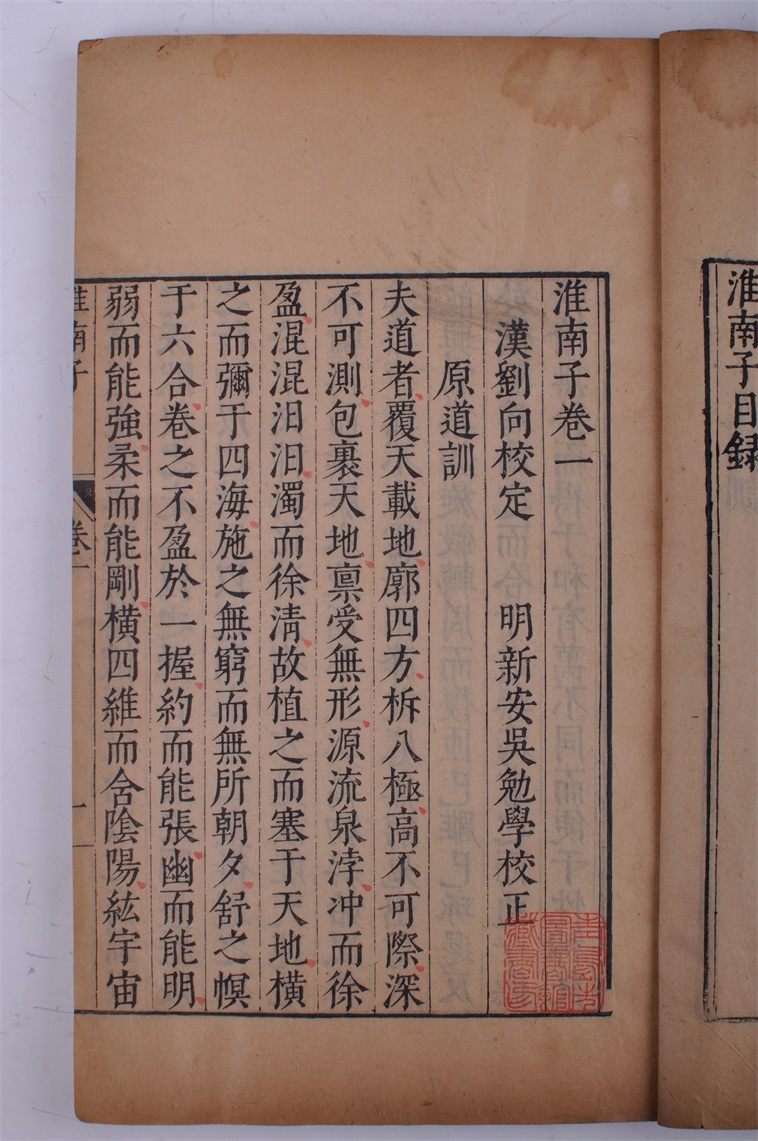 淮南子目録
淮南子卷一
漢劉向校定 明新安吳勉學校正
原道訓
夫道者覆天載地廓四方柝八極高不可際深
不可測包裹天地禀受無形源流泉浡冲而徐
盈混混汩汩濁而徐淸故植之而塞于天地橫
之而彌于四海施之無窮而無所朝夕舒之幎
于六合卷之不盈於一握約而能張幽而能明
弱而能強柔而能剛橫四維而含陰陽紘宇宙
淮南子 卷一 一